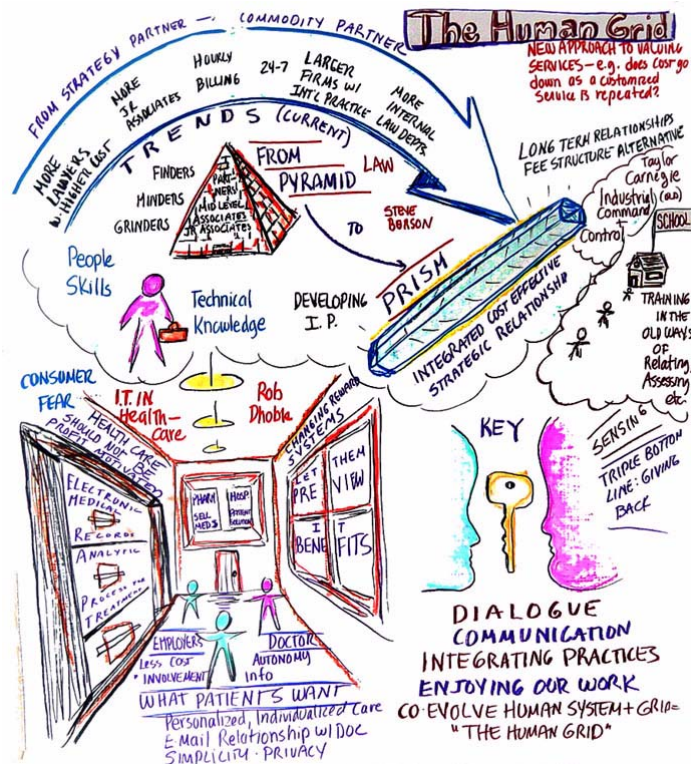 The Human Grid
NEW APPROACH TO VALUING
SERVICES - e.g. does cost go
down as a customized
service is repeated?
FROM STRATEGY PARTNER - COMMODITY PARTNER
MORE
LAWYERS
W. HIGHER COST
MORE
JR
ASSOCIATES
HOURLY
BILLING
24-7
LARGER
FIRMS W/
INT'L PRACTICE
MORE
INTERNAL
LAW DEPTS.
TRENDS (CURRENT)
FINDERS
MINDERS
GRINDERS
PART-
NERS
MID LEVEL
ASSOCIATES
JR ASSOCIATES
FROM
PYRAMID
LAW
TO
STEVE
BORSON
PRISM
INTEGRATED COST EFFECTIVE
STRATEGIC RELATIONSHIP
DEVELOPING
I.P.
People
Skills
Technical
Knowledge
LONG TERM RELATIONSHIPS
FEE STRUCTURE - ALTERNATIVE
Taylor
Carnegie
Industrial (OLD)
Command
+
Control
SCHOOL
TRAINING
IN THE
OLD WAYS
OF
Relating,
Assessing,
etc.
SENSING
TRIPLE BOTTON
LINE: GIVING
BACK
CONSUMER
FEAR
I.T. IN
Health-
care
Rob
Dhobla
HEALTH CARE
SHOULD NOT BE
PROFIT MOTIVATED
ELECTRONIC
MEDICAL
RECORDS
ANALYTIC
PROCESS FOR
TREATMENT
PHARM
SELL
MEDS
HOSP
PATIENT
CHANGING REWARD
SYSTEMS
LET THEM
PRE VIEW
I T
BENE FITS
EMPLOYERS
Less COST
• INVOLVEMENT
DOCTOR
AUTONOMY
Info
WHAT PATIENTS WANT
Personalized, Individualized Care
E Mail Relationship W/ DOC
SIMPLICITY · PRIVACY
KEY
DIALOGUE
COMMUNICATION
INTEGRATING PRACTICES
ENJOYING OUR WORK
CO-EVOLVE HUMAN SYSTEM + GRID =
"THE HUMAN GRID"